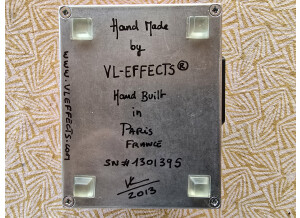 Hand Made
by
VL-EFFECTS®
Hand Built
in
PARIS
FRANCE
SN#1301395
2013
www.VLEFFECTS.com